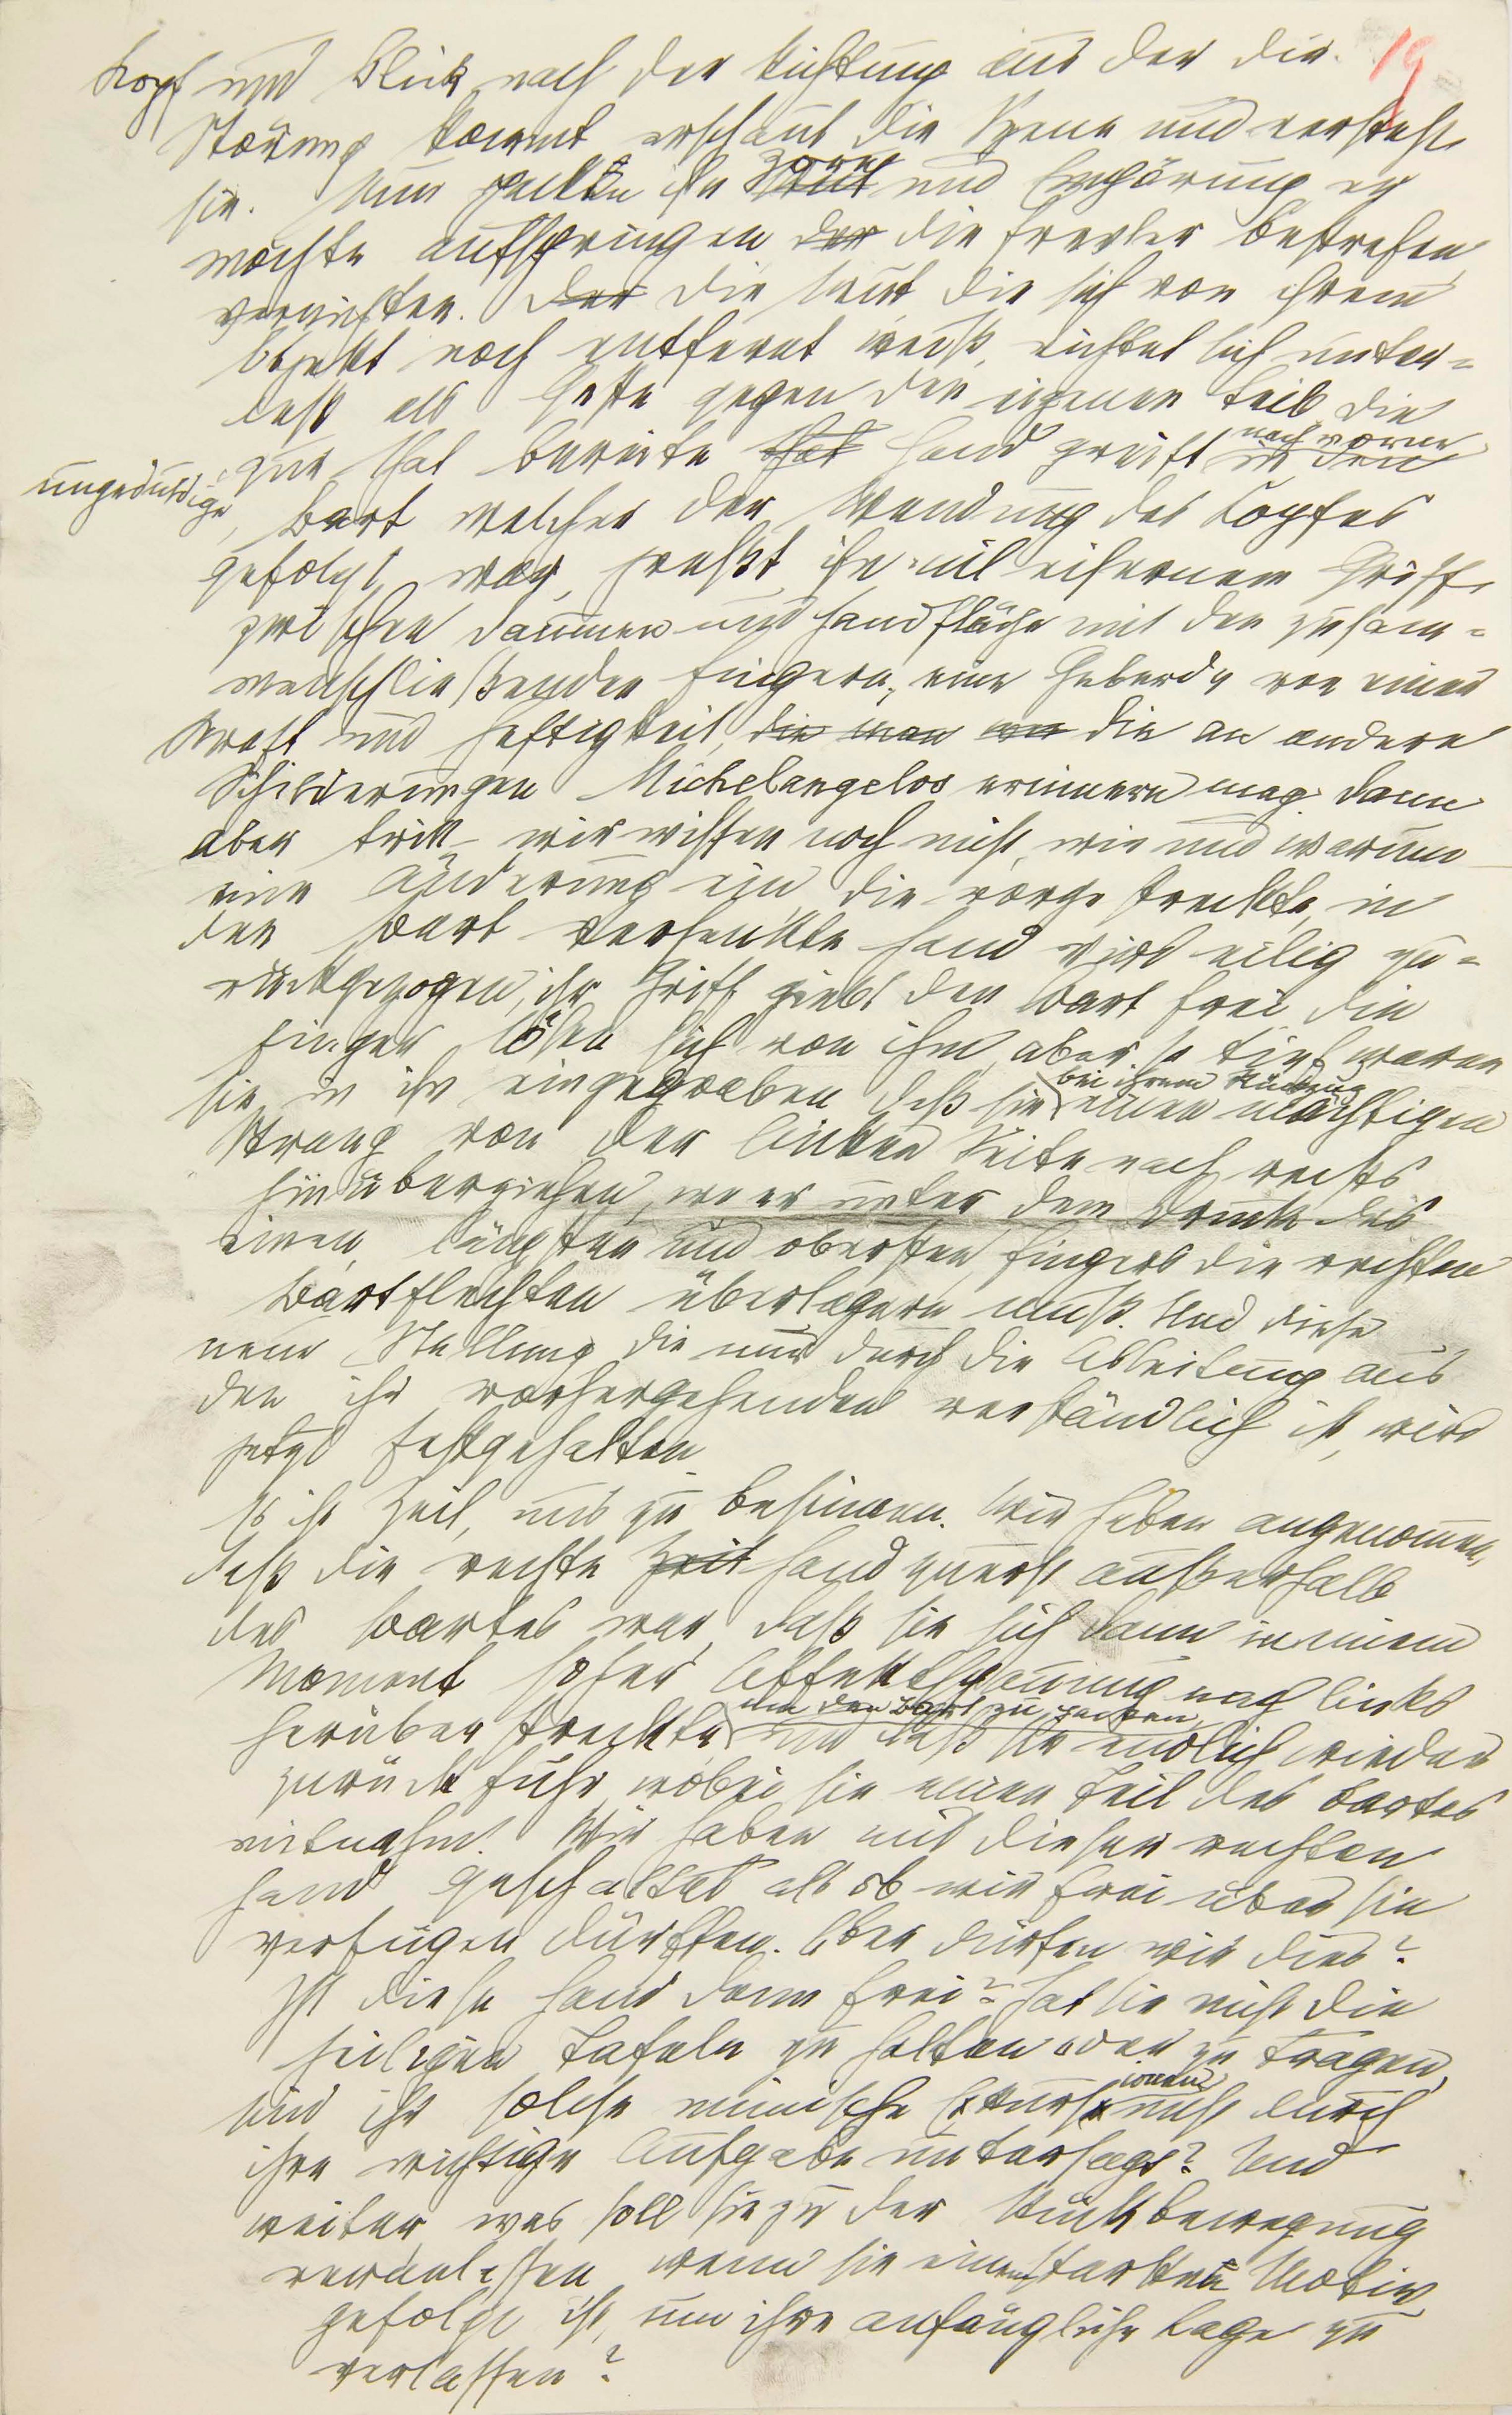 19
Kopf und Blick nach der Richtung aus der die
Störung kommt, erschaut die Szene und versteht
sie. Nun packen ihn Wut Zorn und Empörung, er
möchte aufspringen der die Frevler bestrafen,
vernichten. Der Die Wut die sich von ihrem
Objekt noch entfernt weiß, richtet sich unter=
deß als Geste gegen den eigenen Leib, die
ungeduldige,
zur That bereite That Hand greift in den nach vorne
Bart welcher der Wendung des Kopfes
gefolgt war, preßt ihn mit eisernem Griff
zwischen Daumen und Handfläche mit den zusam=
menschließenden Fingern, eine Geberde von einer
Kraft und Heftigkeit, die man an die an andere
Schilderungen Michelangelos erinnern mag. Dann
aber tritt – wir wissen noch nicht, wie und warum –
eine Änderung ein, die vorgestreckte, in
den Bart versenkte Hand wird eilig zu=
rückgezogen, ihr Griff giebt den Bart frei, die
Finger lösen sich von ihm, aber so tief waren
sie in ihn eingegraben, daß sie bei ihrem Rückzug einen mächtigen
Strang von der linken Seite nach rechts
hinüberziehen, wo er unter dem Druck des
einen, längsten und obersten Fingers die rechten
Bartflechten überlagern muß. Und diese
neue Stellung, die nur durch die Ableitung aus
der ihr vorhergehenden verständlich ist, wird
jetzt festgehalten.
Es ist Zeit, uns zu besinnen. Wir haben angenommen,
daß die rechte Zeit Hand zuerst außerhalb
des Bartes war, daß sie sich dann in einem
Moment hoher Affektspannung nach links
herüber streckte um den Bart zu packen, und daß sie endlich wieder
zurück fuhr, wobei sie einen Teil des Bartes
mitnahm. Wir haben mit dieser rechten
Hand geschaltet, als ob wir frei über sie
verfügen dürften. Aber dürfen wir dies?
Ist diese Hand denn frei? Hat sie nicht die
heiligen Tafeln zu halten oder zu tragen,
sind ihr solche mimische Exkurse nicht durch
ihre wichtige Aufgabe untersagt? Und
weiter, was soll sie zu der Rückbewegung
veranlassen, wenn sie einem starken Motiv
gefolgt ist, um ihre anfängliche Lage zu
verlassen?